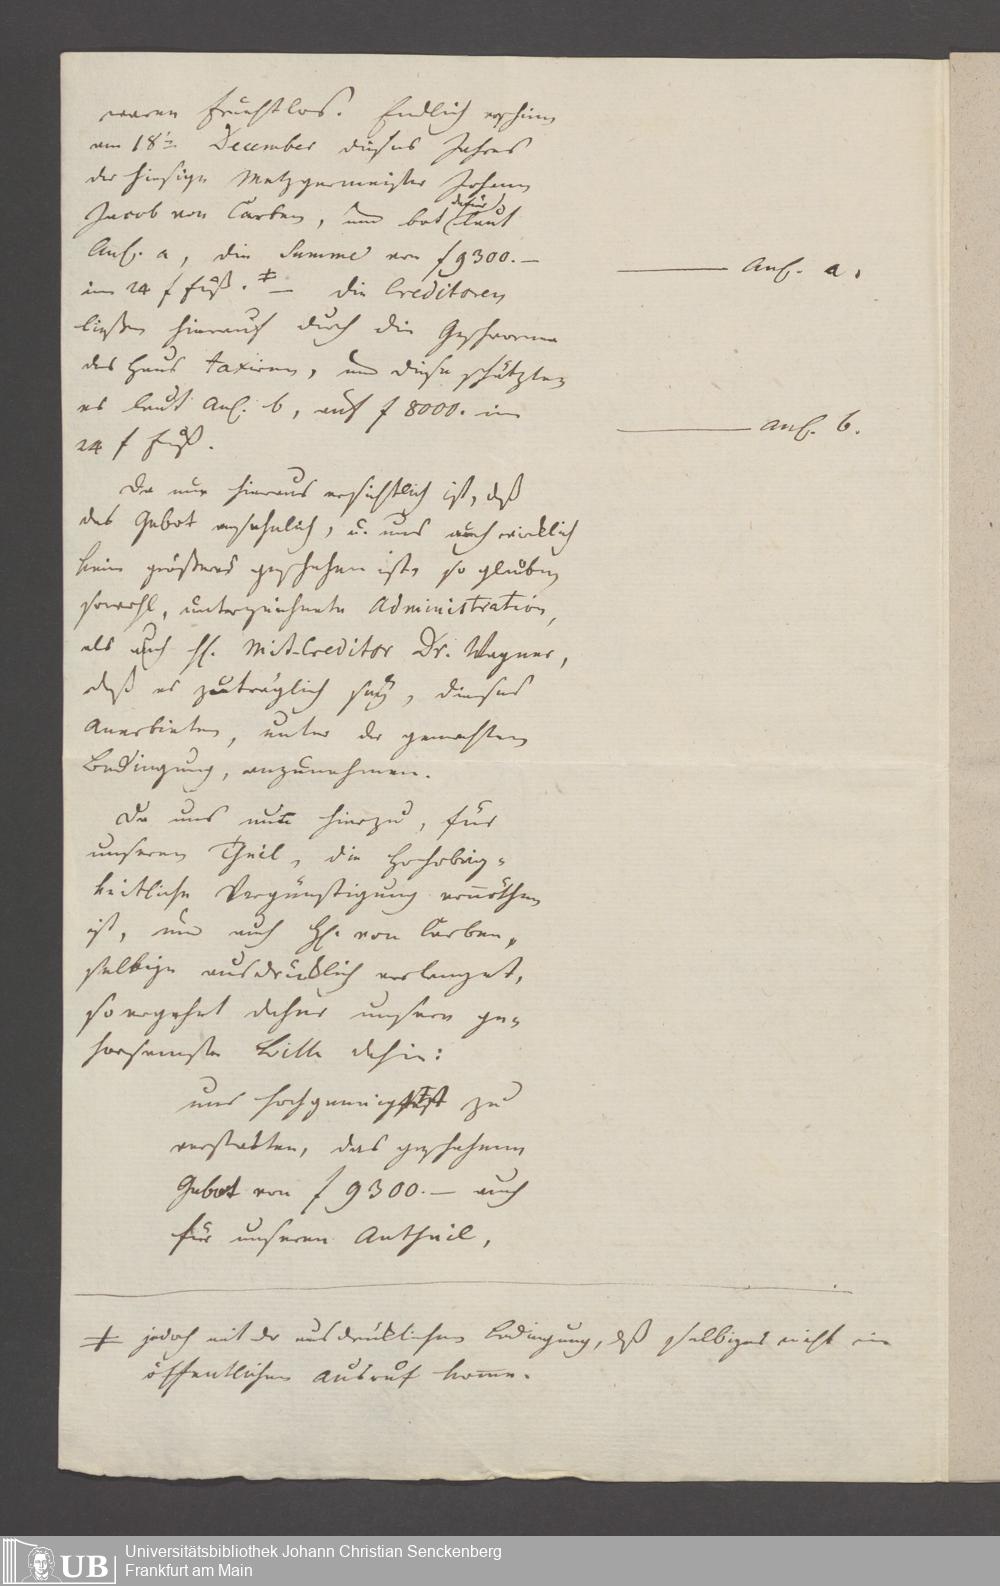 waren fruchtlos. Endlich erschien
am 18ten December dieses Jahres
der hiesige Metzgermeister Johann
Jacob von Carben, und bot dafür laut
Anl. a, die Summe von f 9300.—
im 24 f Fuß. ‡ — Die Creditoren
Anl. a.
ließen hierauf durch die Geschworne
das Haus taxiren, und diese schätzten
es laut Anl. b, auf f 8000. im
Anl. b.
24 f Fuß.
Da nun hieraus ersichtlich ist, daß
das Gebot ansehnlich, u. uns auch wirklich
kein größeres geschehen ist, so glauben
sowohl, unterzeichnete Administration,
als auch H. Mit-Creditor Dr. Wagner,
daß es zuträglich sey, dieses
Anerbieten, unter der gemachten
Bedingung, anzunehmen.
Da uns nun hierzu, für
unseren Theil, die Hochobrig-
keitliche Vergünstigung vonnöthen
ist, und auch H. von Carben,
selbige ausdrücklich verlanget,
so ergehet daher unsere ge-
horsamste Bitte dahin:
uns hochgeneigtest zu
verstatten, das geschehene
Gebot von f 9300.— auch
für unseren Antheil,
‡ jedoch mit der ausdrücklichen Bedingung, daß selbiges nicht in
öffentlichen Ausruf komme.
UB
Universitätsbibliothek Johann Christian Senckenberg
Frankfurt am Main